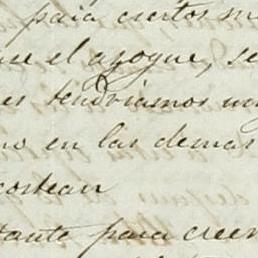 para ciertos m
se el azogue, se
es tendriamos un
no en las demas
costean
tante para creer